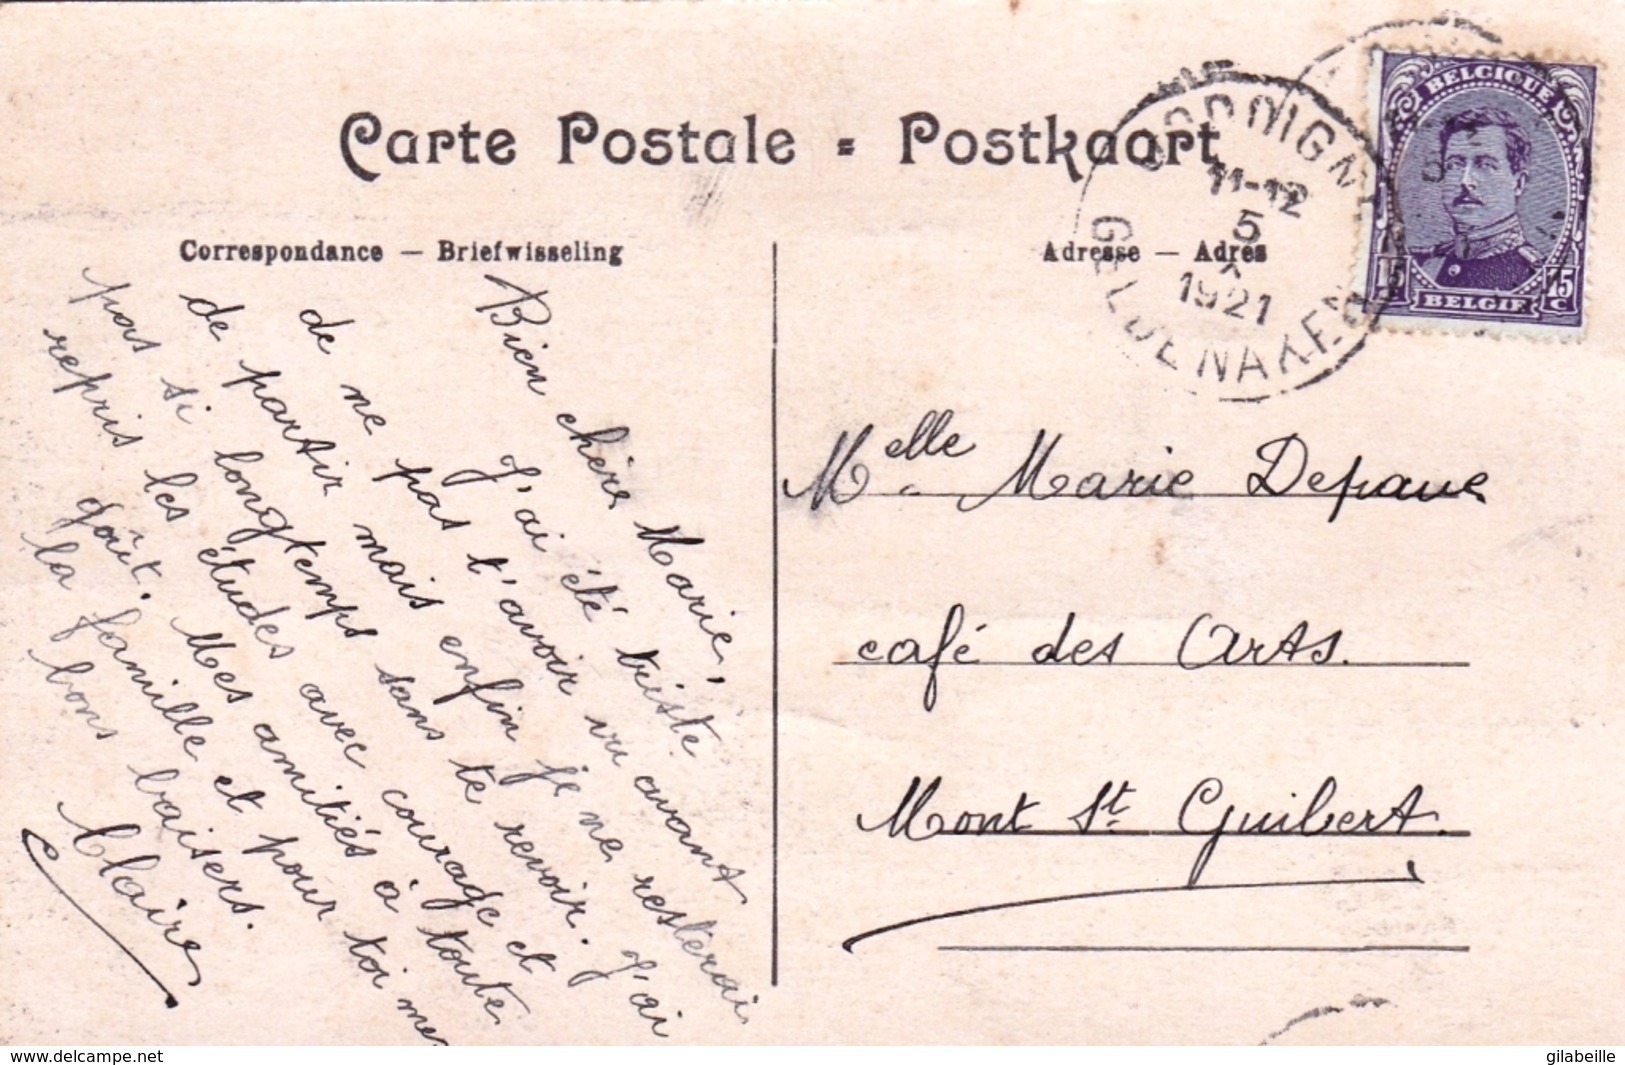 Carte Postale = Postkaart
Correspondance — Briefwisseling
Adresse — Adres
BELGIQUE
15 15
C
BELGIE
11-12
5
1921
GELDENAKEN
Bien chère Marie,
J'ai été triste
de ne pas t'avoir vu avant
de partir mais enfin je ne resterai
pas si longtemps sans te revoir. J'ai
repris les études avec courage et
goût. Mes amitiés à toute
la famille et pour toi mes
bons baisers.
Claire
Melle Marie Depauw
café des Arts.
Mont St Guibert.
www.delcampe.net
gilabeille